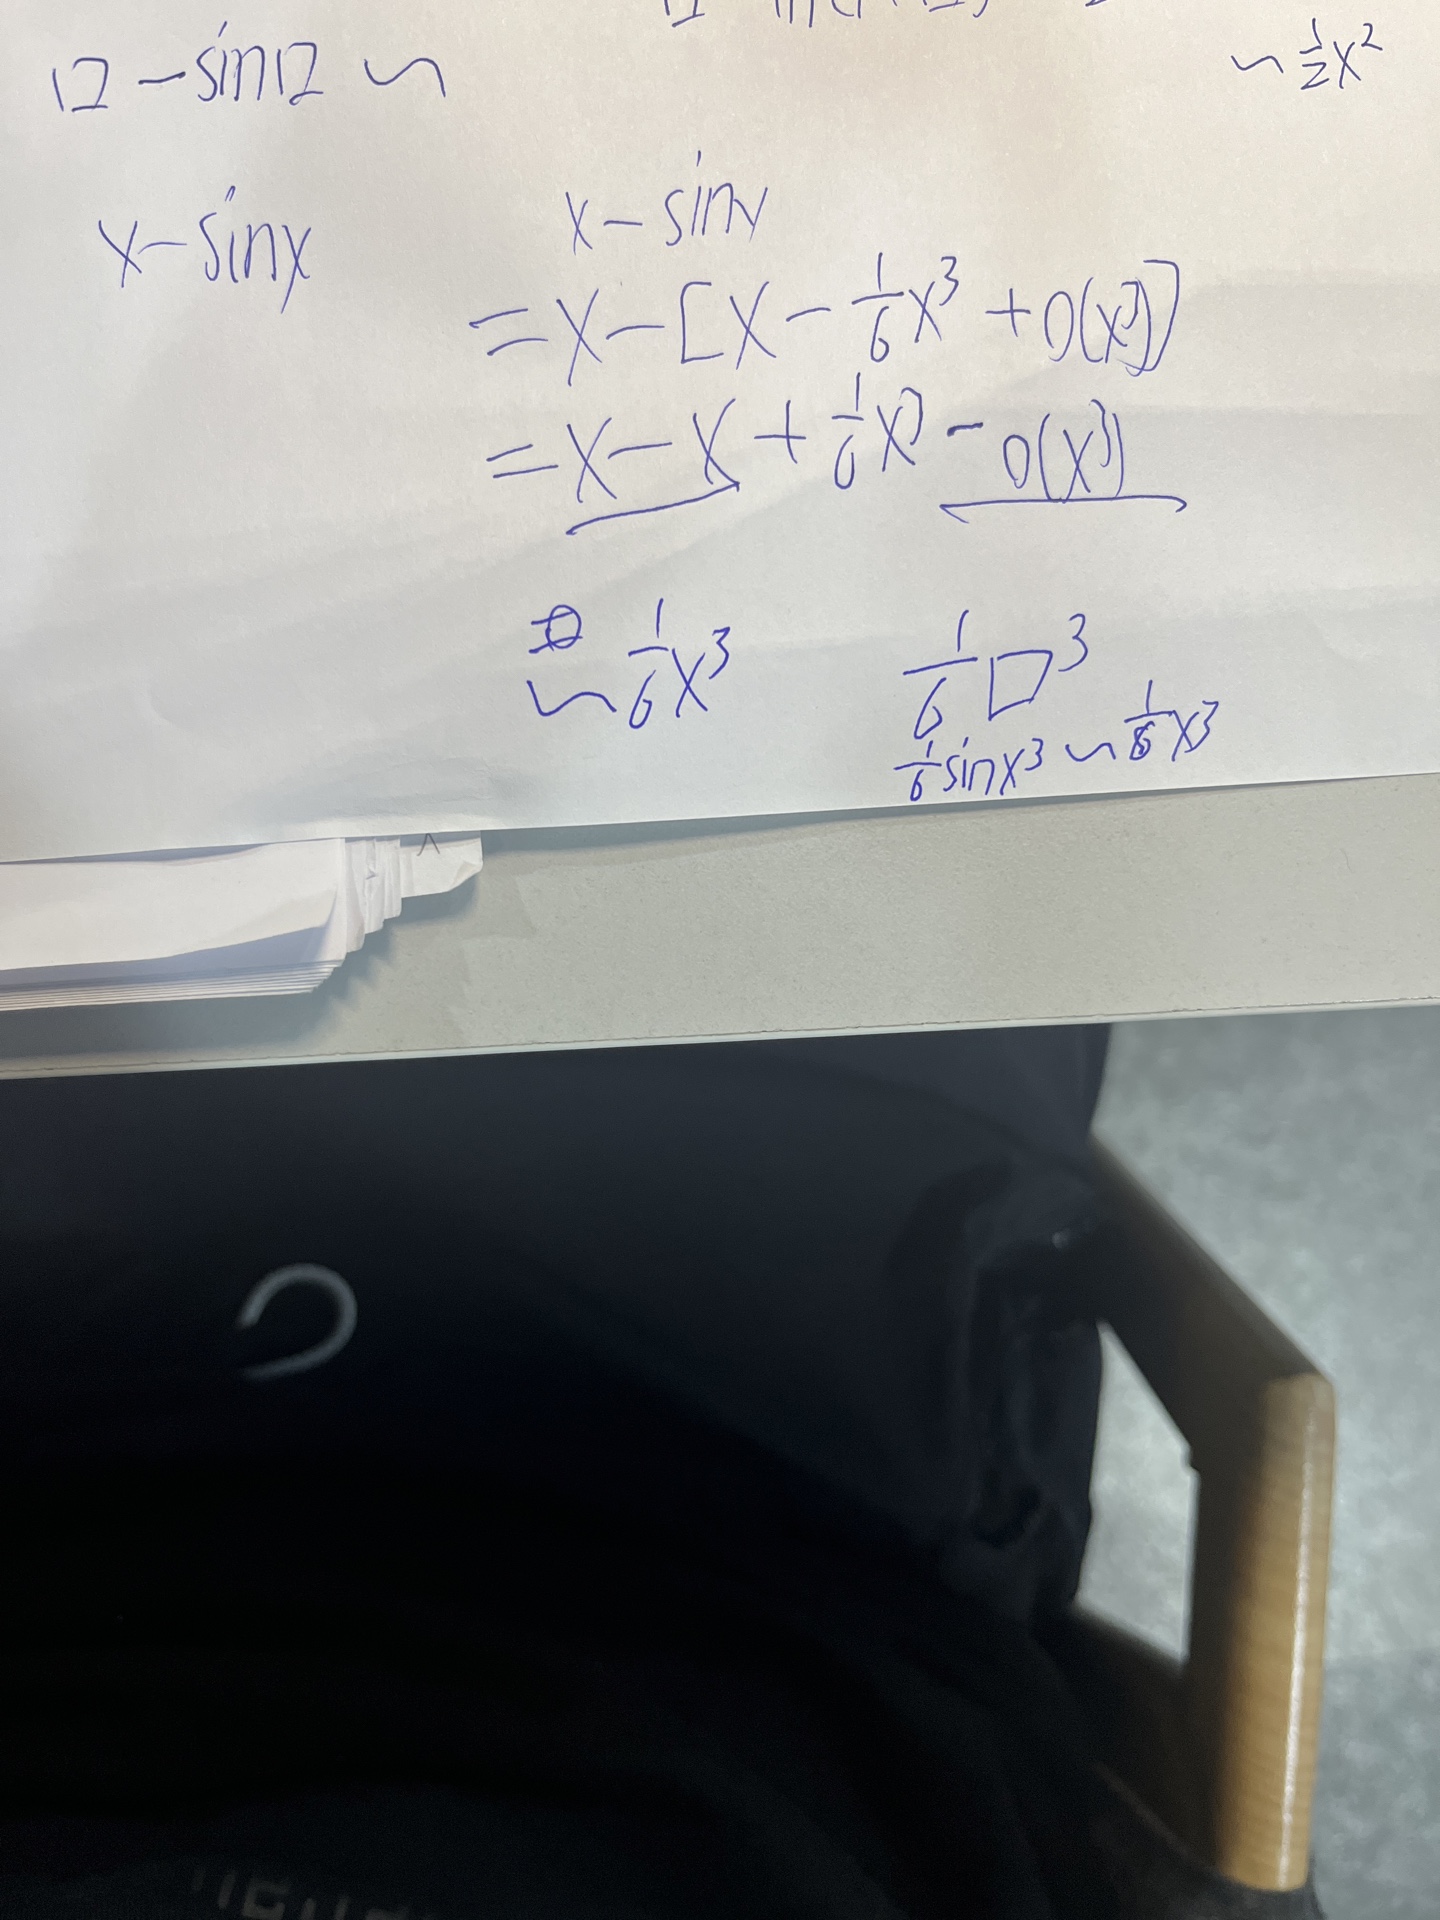 □ - sin□ ~
~ 1/2 x²
x - sinx
x - sinx
= x - [x - 1/6 x³ + o(x³)]
= x - x + 1/6 x³ - o(x³)
~ 1/6 x³
1/6 □³
1/6 sinx³ ~ 1/6 x³